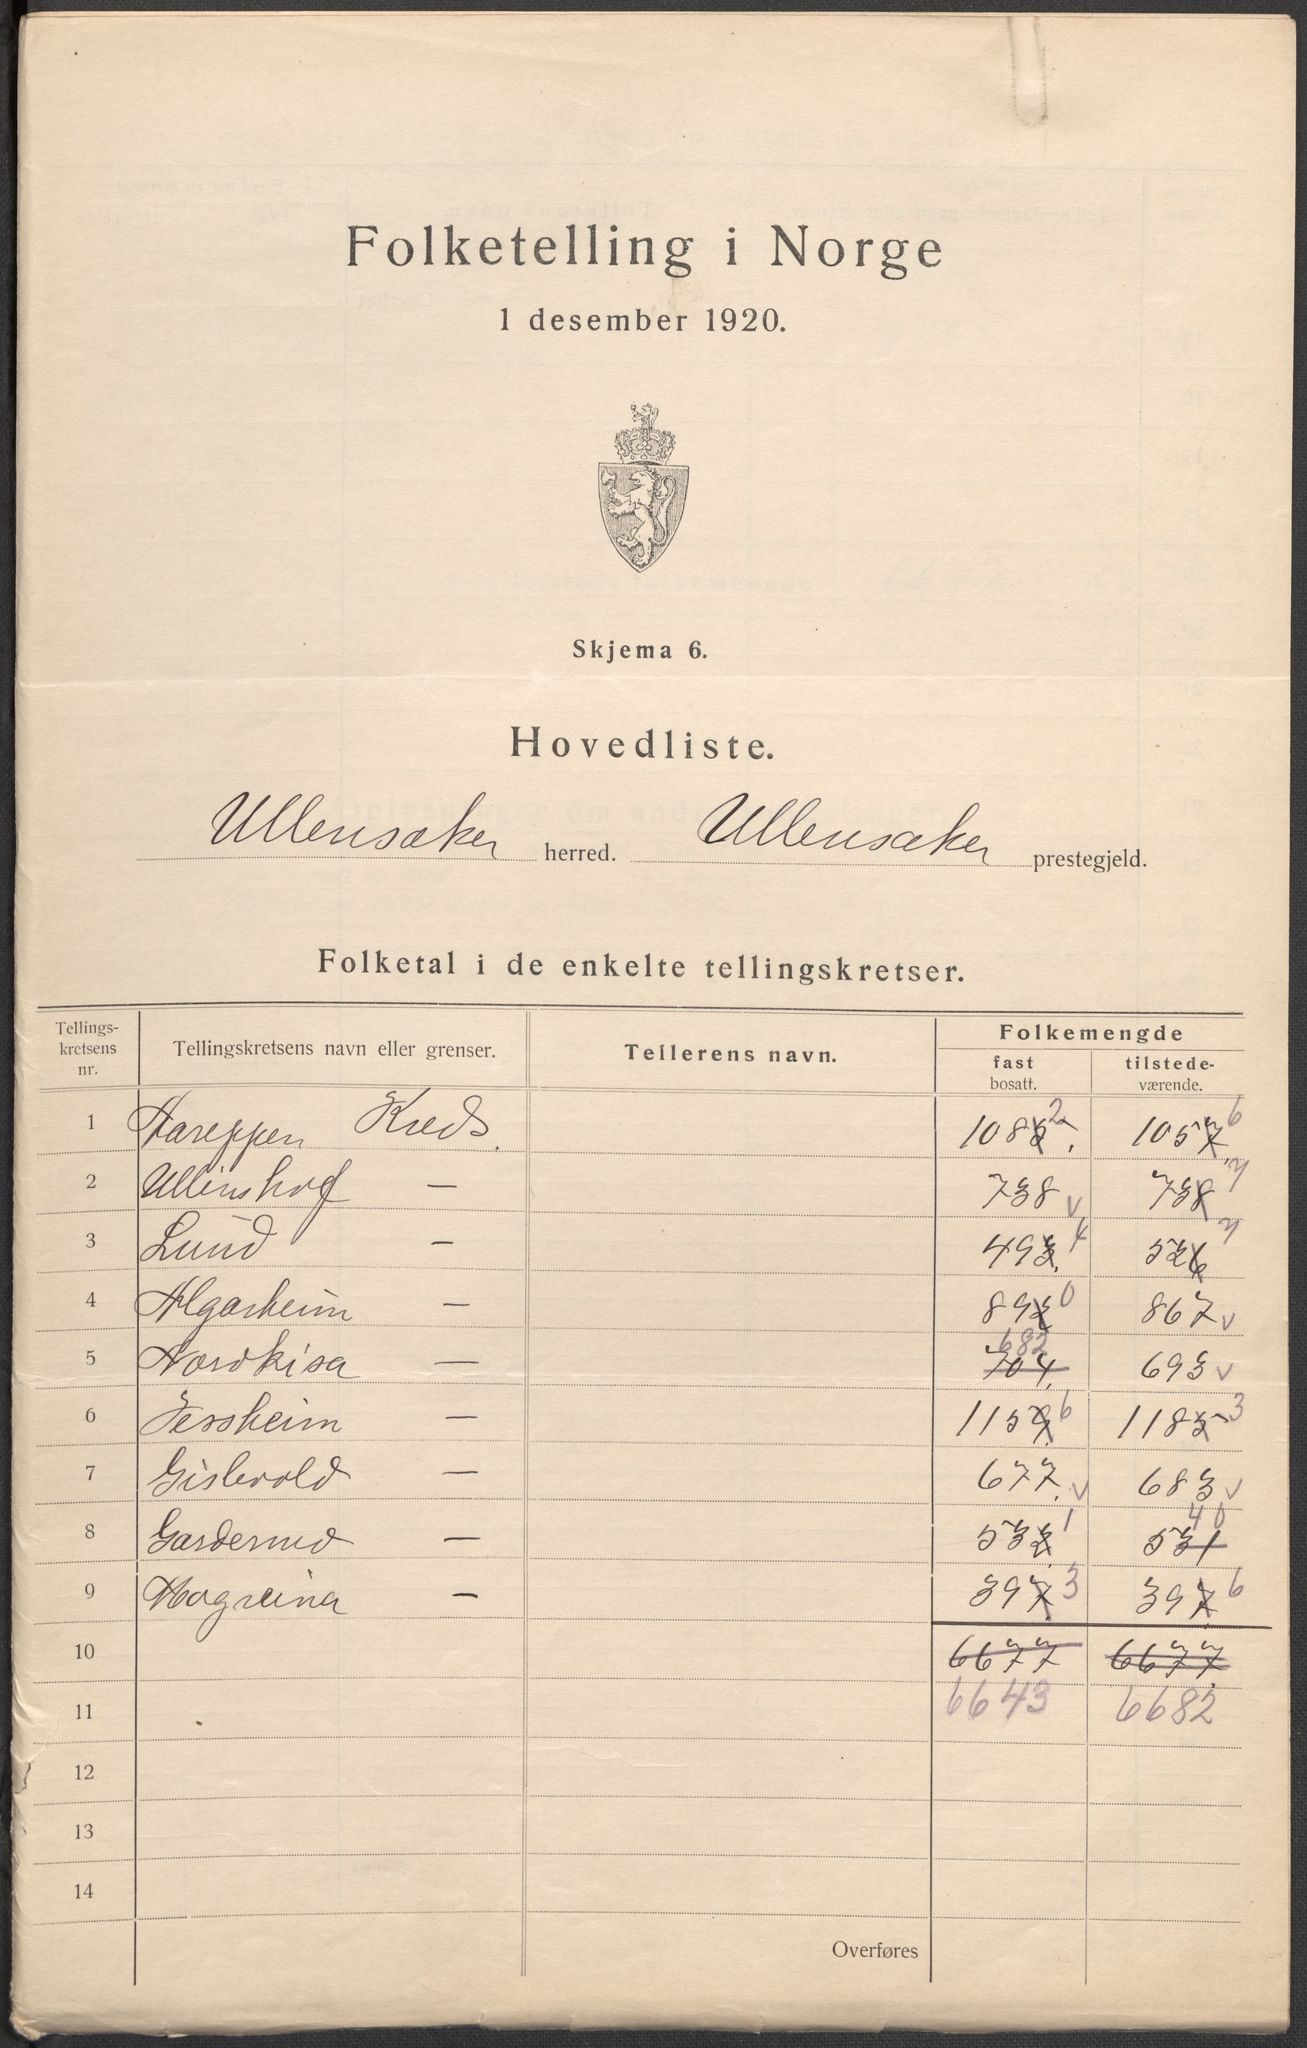 Folketelling i Norge
1 desember 1920.
Skjema 6.
Hovedliste.
Ullensaker herred. Ullensaker prestegjeld.
Folketal i de enkelte tellingskretser.
Tellings-
kretsens
nr.
Tellingskretsens navn eller grenser.
Tellerens navn.
Folkemengde
fast
bosatt.
tilstede-
værende.
1 Aareppen Kreds. 1082 1056
2 Ullinshof — 738 v 737
3 Lund — 494 527
4 Algarheim — 890 867 v
5 Nordkisa — 704 682 693 v
6 Jessheim — 1156 1183
7 Gislevold — 677 v 683 v
8 Gardermo — 531 531 40
9 Mogreina — 393 396
10 6677 6677
11 6643 6682
12
13
14
Overføres